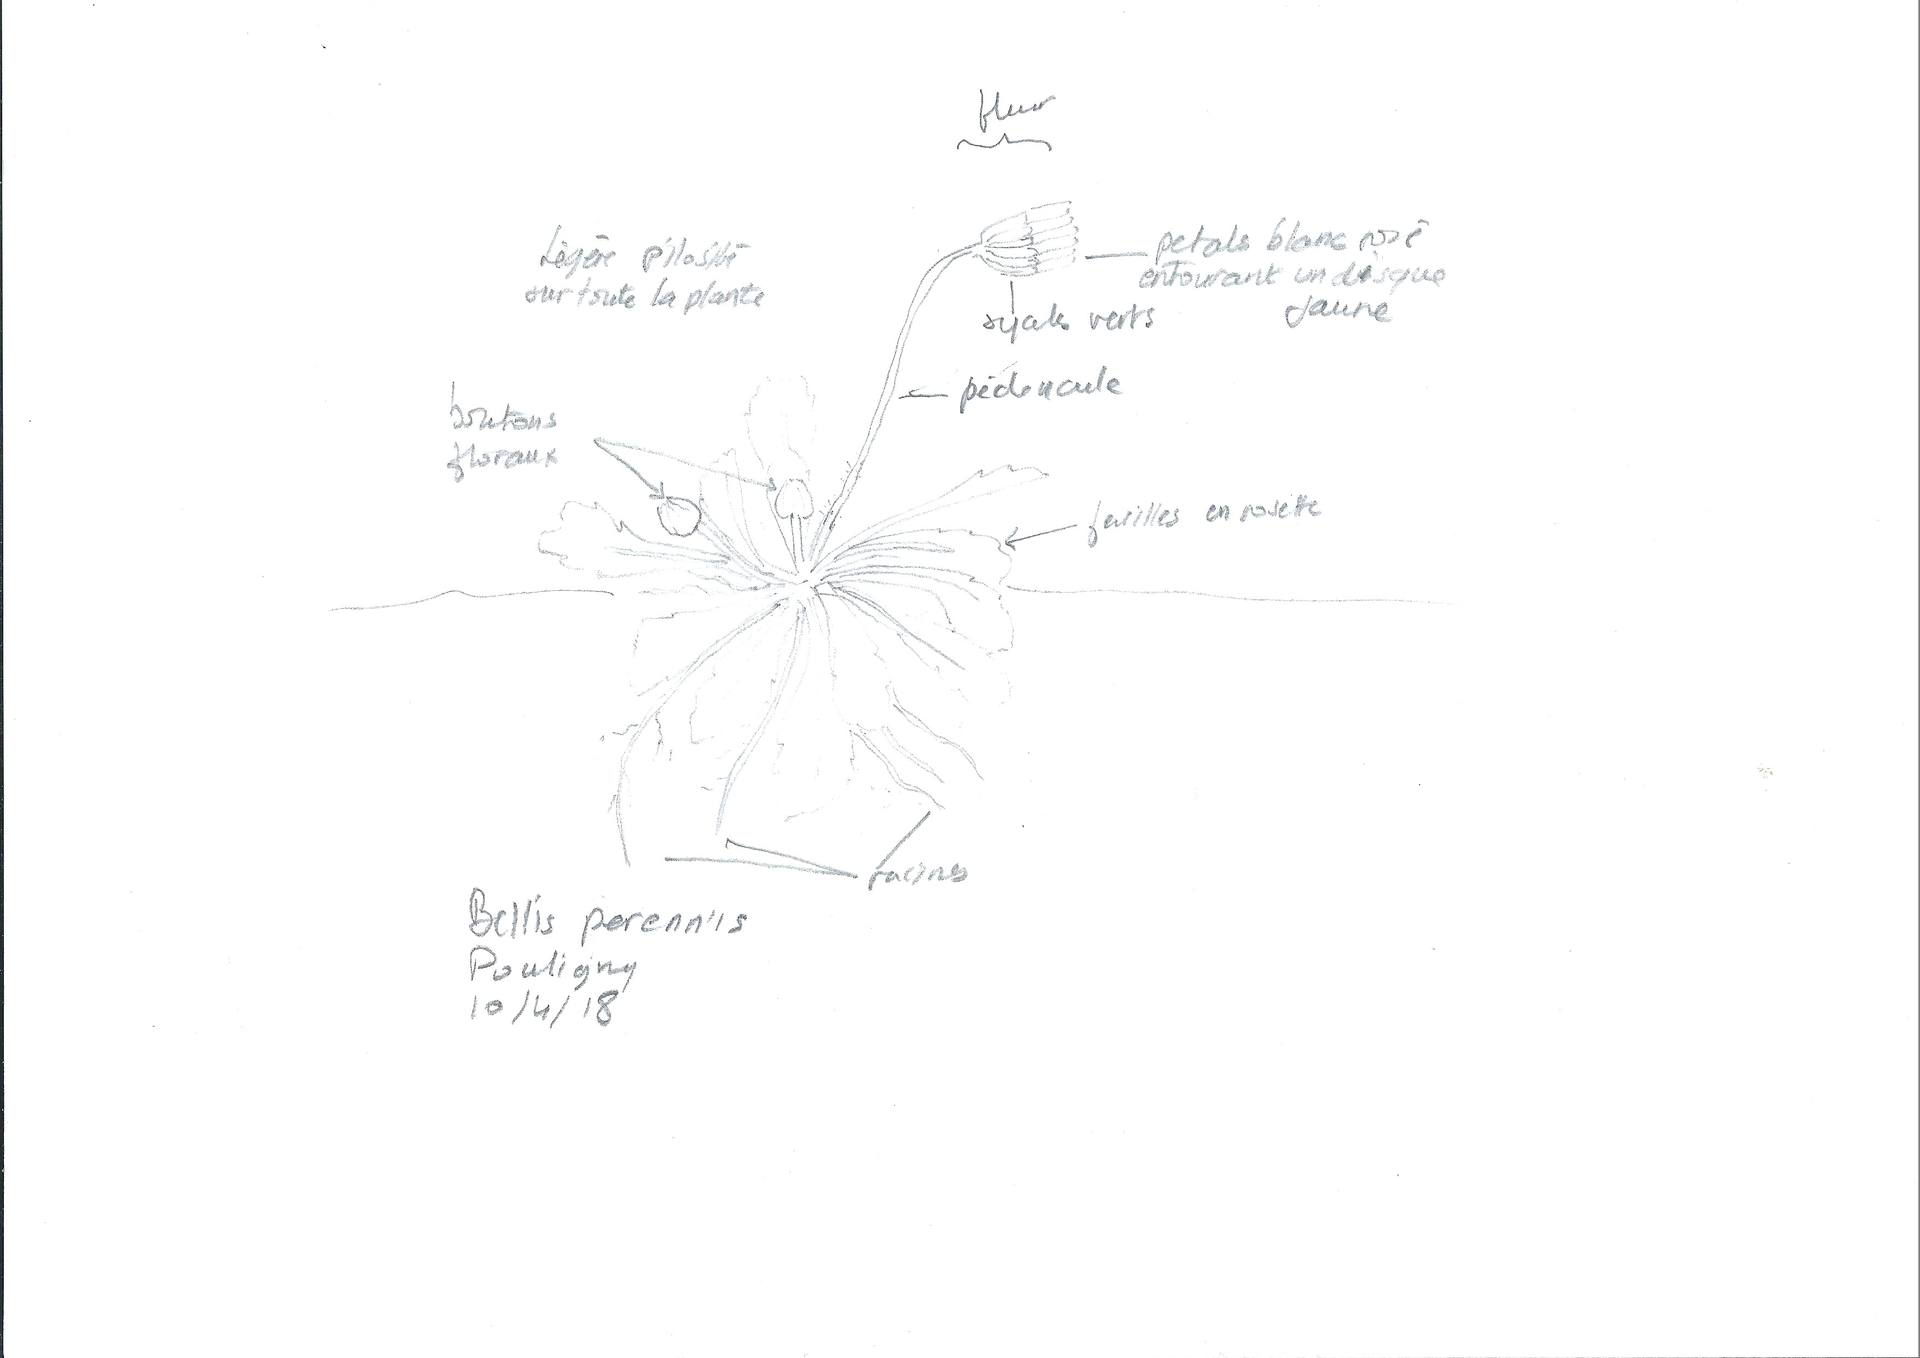 fleur
Légère pilosité
sur toute la plante
petals blanc rosé
entourant un disque
jaune
verts
pédoncule
boutons
floraux
feuilles en rosette
racines
Bellis perennis
Pouligny
10/4/18